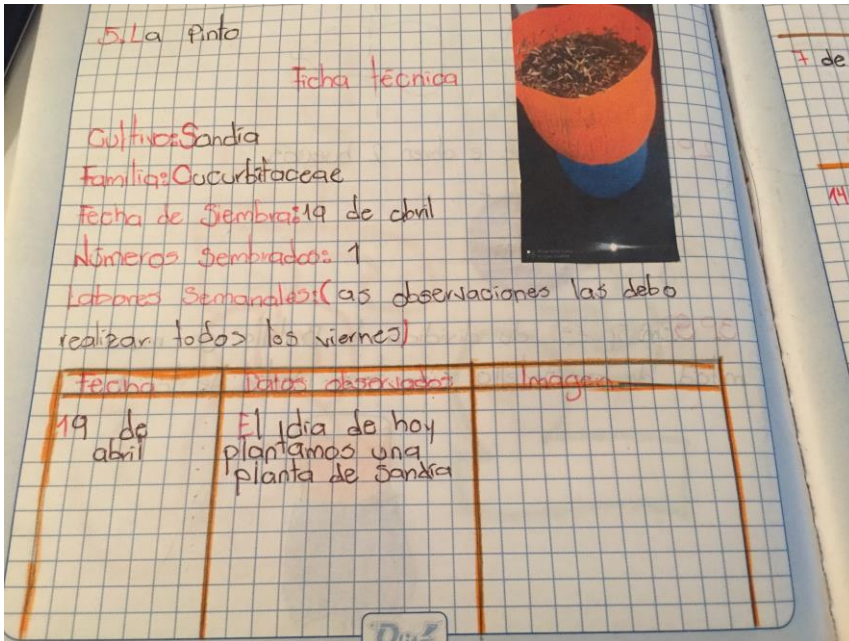 5. La Pinto
Ficha técnica
Cultivo: Sandía
Familia: Cucurbitaceae
Fecha de Siembra: 19 de abril
Números Sembrados: 1
Labores Semanales: (as observaciones las debo
realizar todos los viernes)
Fecha Datos observados Imagen
19 de El día de hoy
abril plantamos una
planta de sandía
7 de
14